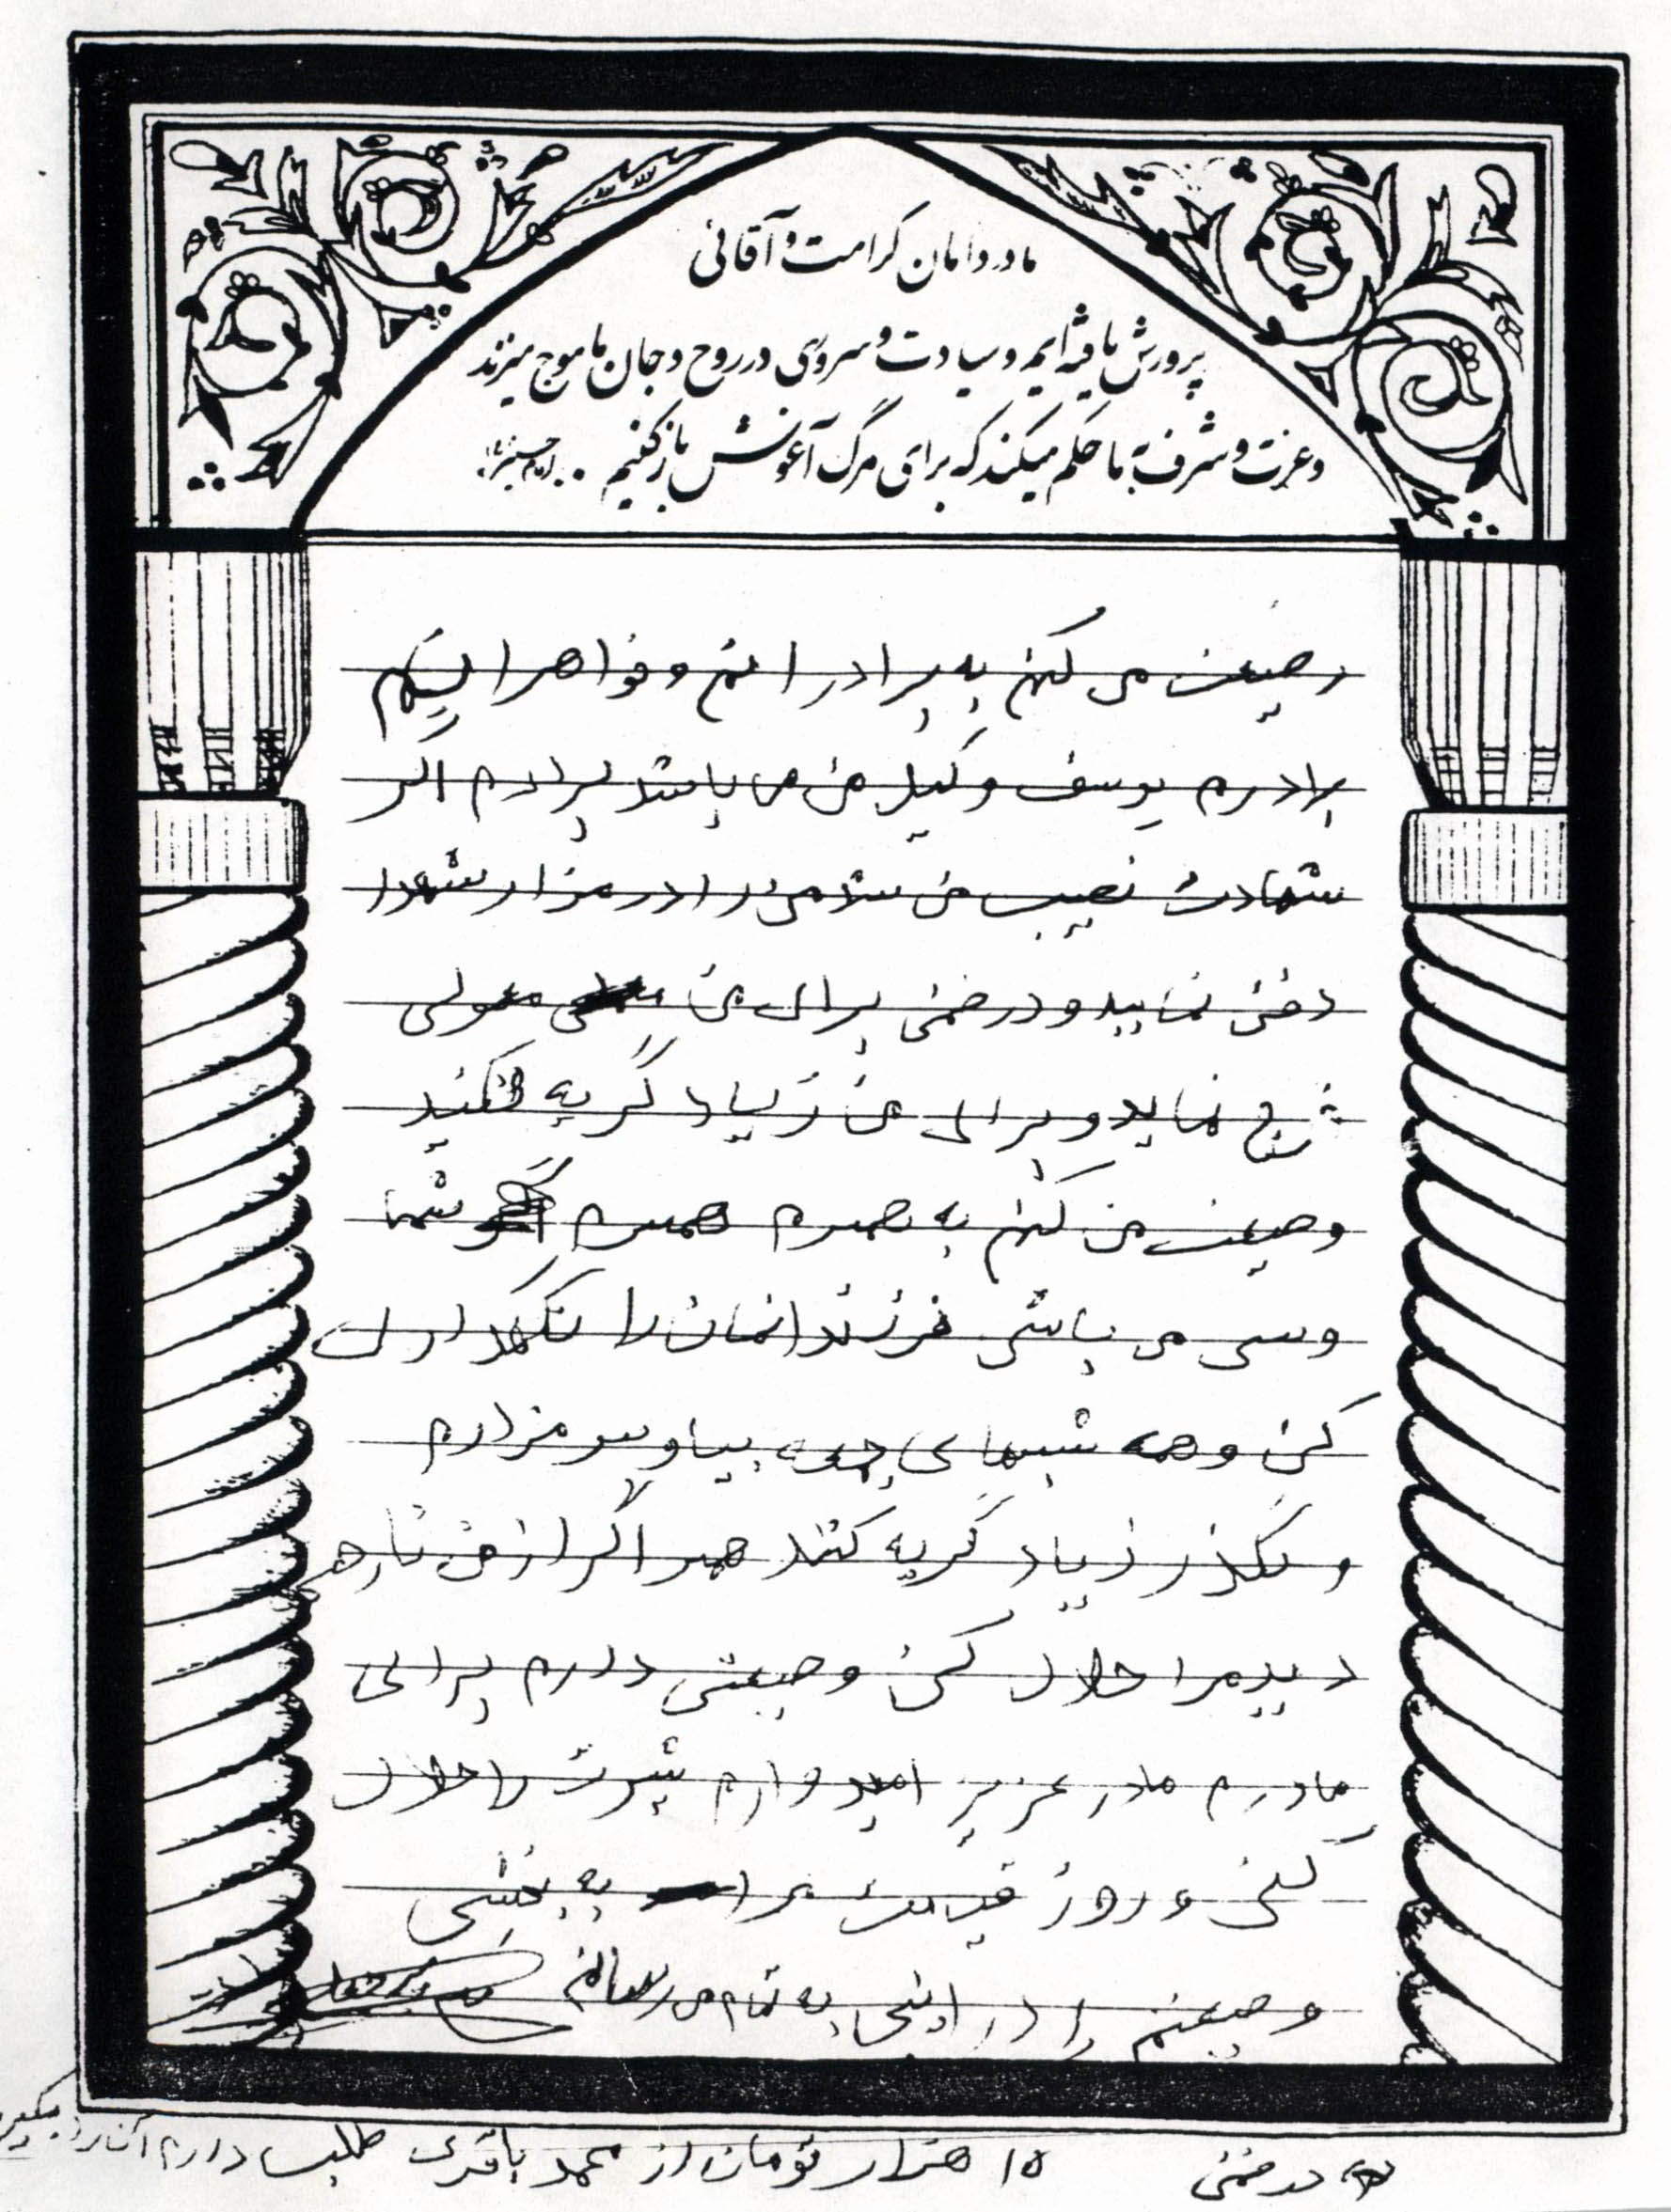 ما در دامان کرامت و آقائی
پرورش یافته‌ایم و سیادت و سروری در روح و جان ما موج میزند
و عزت و شرف به ما حکم میکند که برای مرگ آغوش باز کنیم . امام حسین
وصیت می کنم به برادرانم و خواهرانیکم
برادرم یوسف وکیل من می باشد برادرم اگر
شهادت نصیب من شد مرا در مزار شهدا
دفن نمایید و در ضمن برای من معولی
خرج نماید و برای من زیاد گریه نکنید
وصیت می کنم به همسرم همسرم شما
وسی می باشی فرزندانمان را نگهداری
کن و همه شبهای جمعه بیا و سر مزارم
و نگذار زیاد گریه کنند همسر اگر از من ناره
دیدمرا حلال کن وصیتی دارم برای
مادرم مادر عزیز امیدوارم شیرت را حلال
کنی و روز قیامت مرا به بخشی
وصیتم را در اینجا به تمام می رسانم
در ضمن ۱۵ هزار تومان از محمد باقری طلب دارم آن را بگیرید